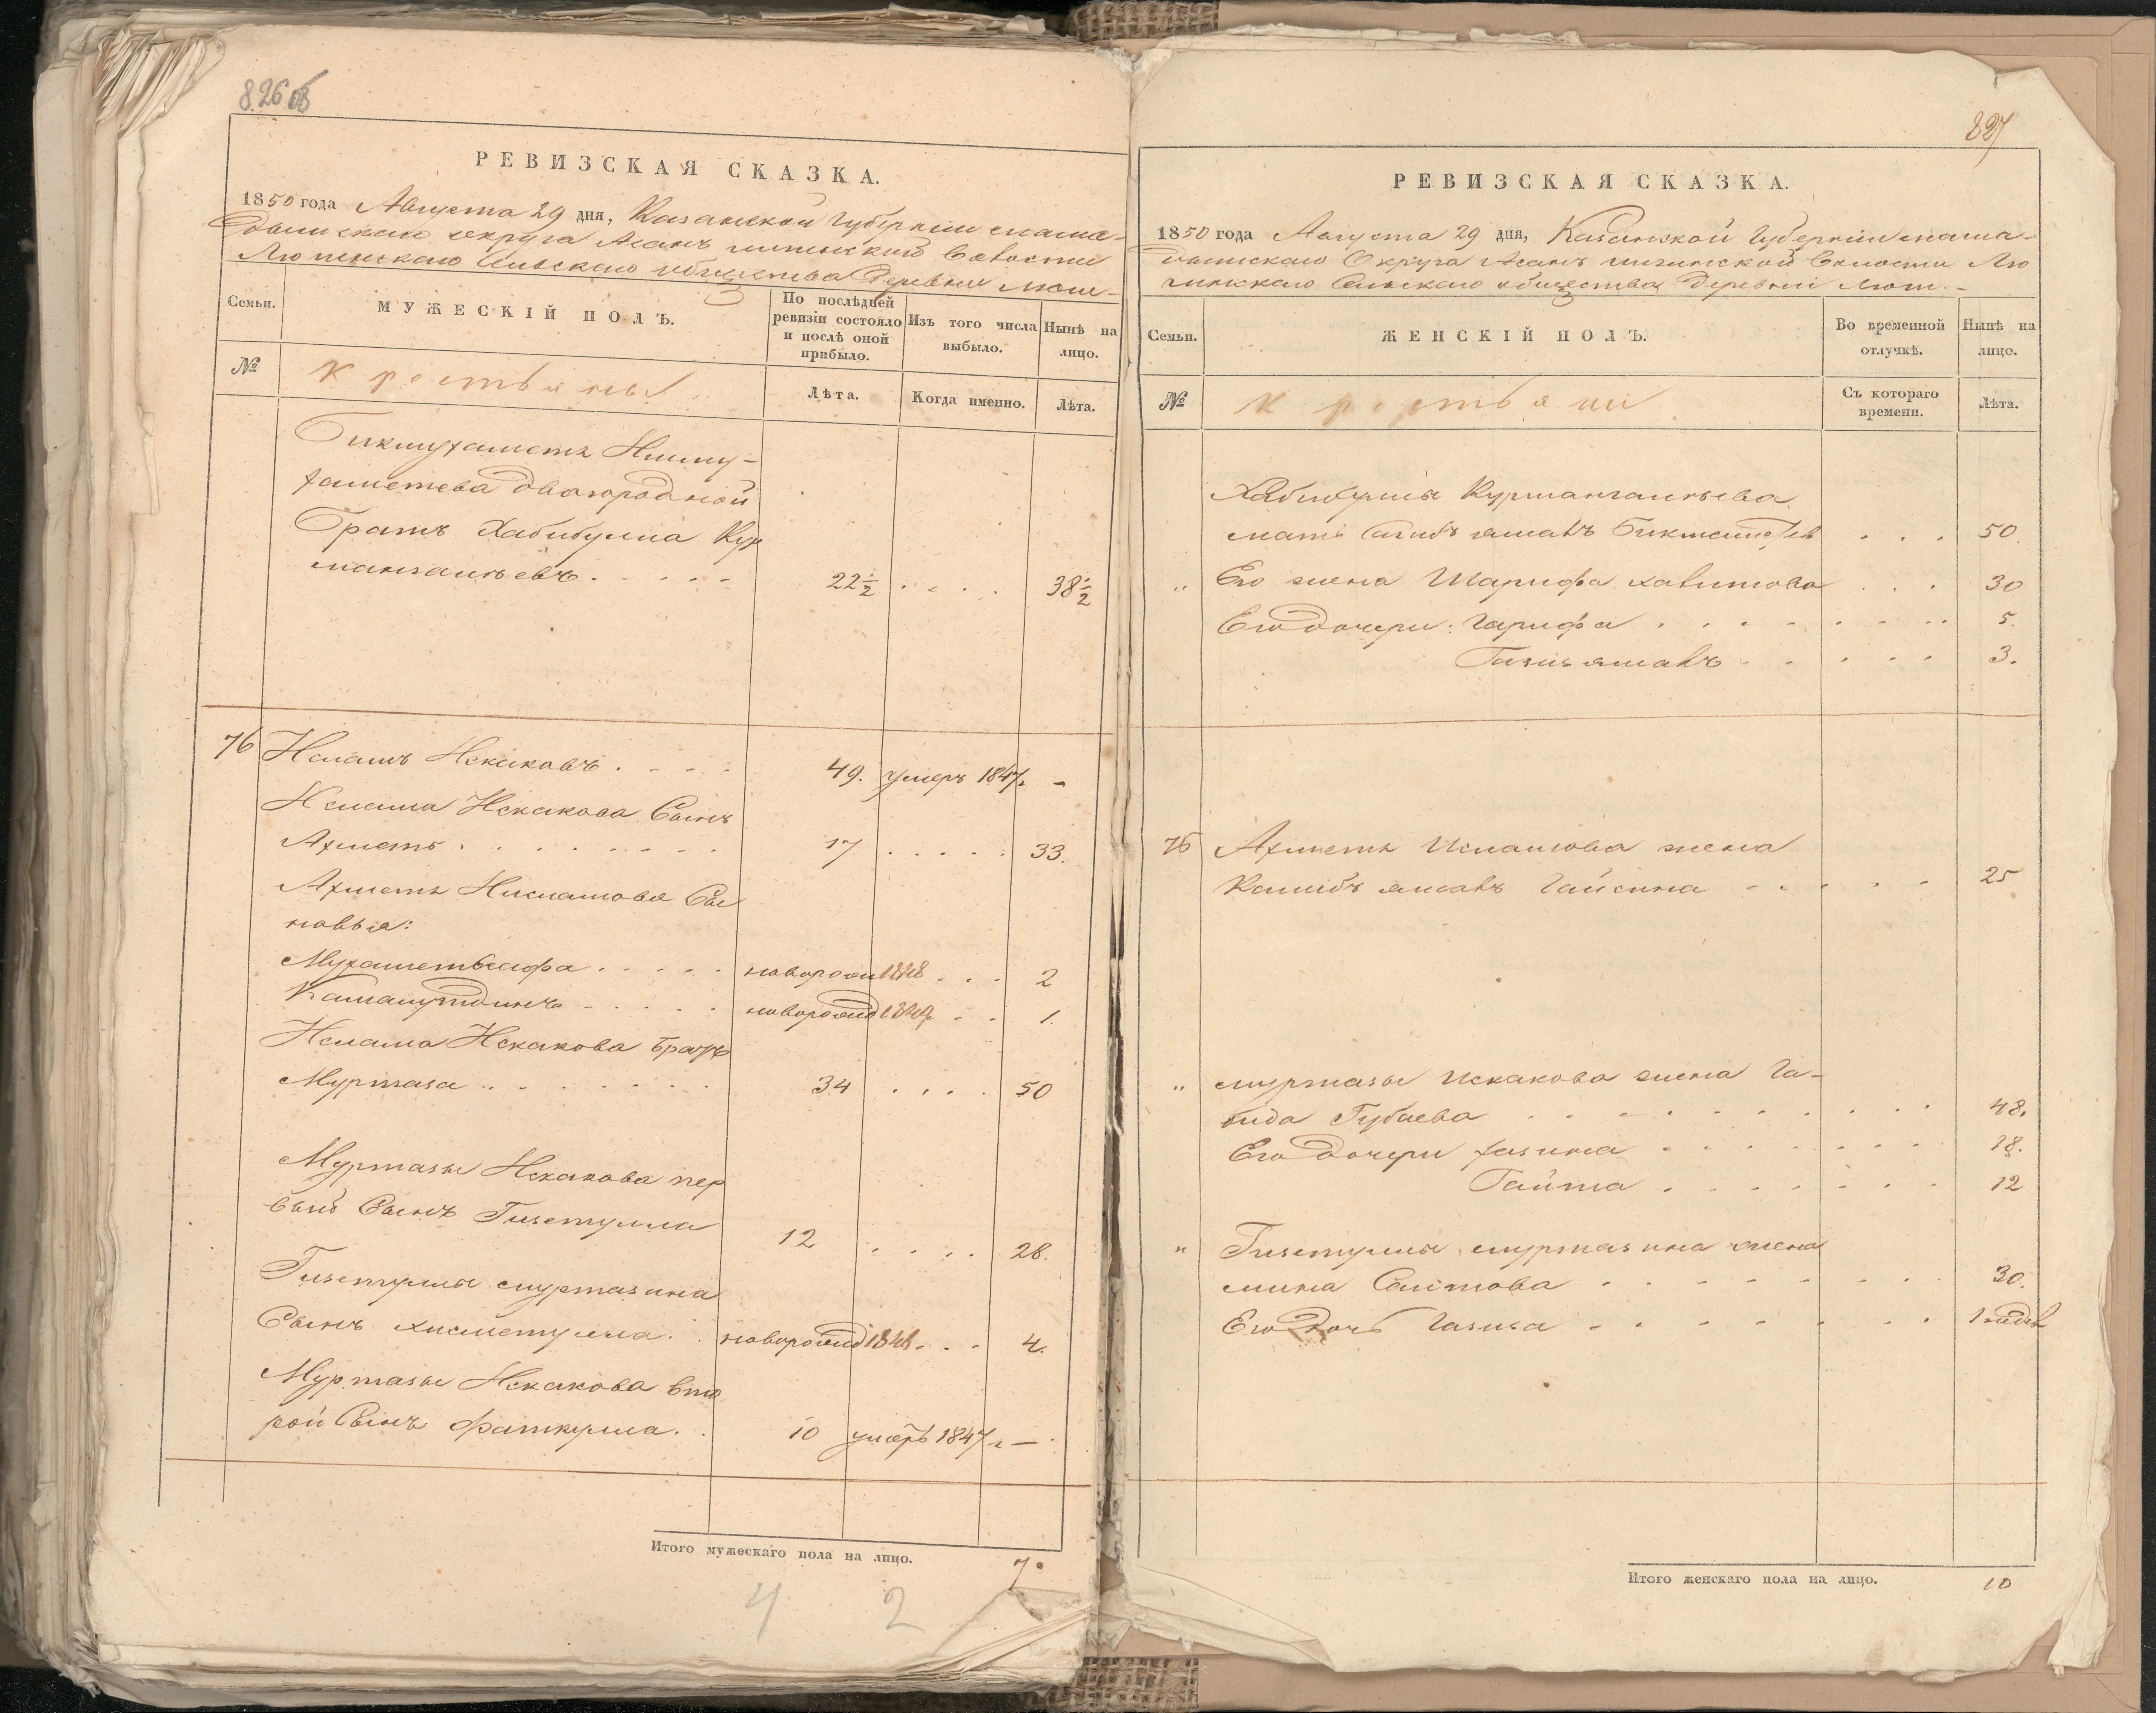 826 об
РЕВИЗСКАЯ СКАЗКА.
1850 года Августа 29 дня, Казанской Губернии мама-
дышскаго округа Асанъ Волости
сельскаго общества Деревни
Семьи.
МУЖЕСКІЙ ПОЛЪ.
По послѣдней ревизіи состояло и послѣ оной прибыло.
Изъ того числа выбыло.
Нынѣ на лицо.
№
крестьяны
Лѣта.
Когда именно.
Лѣта.
Бикмухаметъ Нигму-
хаметева двоюродной
братъ Хабибулла Кур
мангалѣевъ . . . . . 22½ . . . . 38½
76 Исламъ Искаковъ . . . . 49. умеръ 1847. -
Ислама Искакова Сынъ
Ахметъ . . . . . . . . 17 . . . . . 33.
Ахметя Ислямова Сы
новья:
Мухаметсафа . . . . . новорож 1848 . . . 2
Камалутдинъ . . . . . новорожд 1849. . . 1.
Ислама Искакова братъ
Муртаза . . . . . . . 34 . . . . 50
Муртазы Искакова пер
вый Сынъ Гизетулла 12 . . . . 28.
Гизетуллы муртазина
Сынъ хисметулла . . новорожд 1846 . . . 4.
Муртазы Искакова вто
рой Сынъ Фаткулла . . 10 умеръ 1847 г —
Итого мужескаго пола на лицо. 7.
4 2
827
РЕВИЗСКАЯ СКАЗКА.
1850 года Августа 29 дня, Казанской Губернии мама-
дышскаго Округа Асанъ Волости
сельскаго общества Деревни
Семьи.
ЖЕНСКІЙ ПОЛЪ.
Во временной отлучкѣ.
Нынѣ на лицо.
№
крестьяни
Съ котораго времени.
Лѣта.
Хабибуллы Курмангалѣева
мать . . . 50.
" Его жена Шарифа хавитова . . . 30
Его Дочери: Гарифа . . . . . . . . 5.
. . . . . 3.
76 Ахметя Исламова жена
Гайсина - . . . . 25
" муртазы Искакова жена Га-
бида Губаева . . . . . . . . . 48.
Его Дочери Хазина . . . . . . . 18.
Гайша . . . . . . . 12
" Гизетуллы муртазина жена
мина Саитова . . . . . . . . 30.
Его Дочь Газиза . . . . . . . .
Итого женскаго пола на лицо. 10